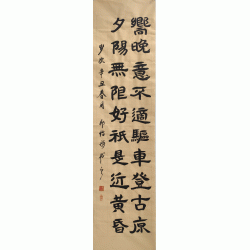 嚮晚意不適驅車登古原
夕陽無限好祇是近黃昏
歲次辛丑春月